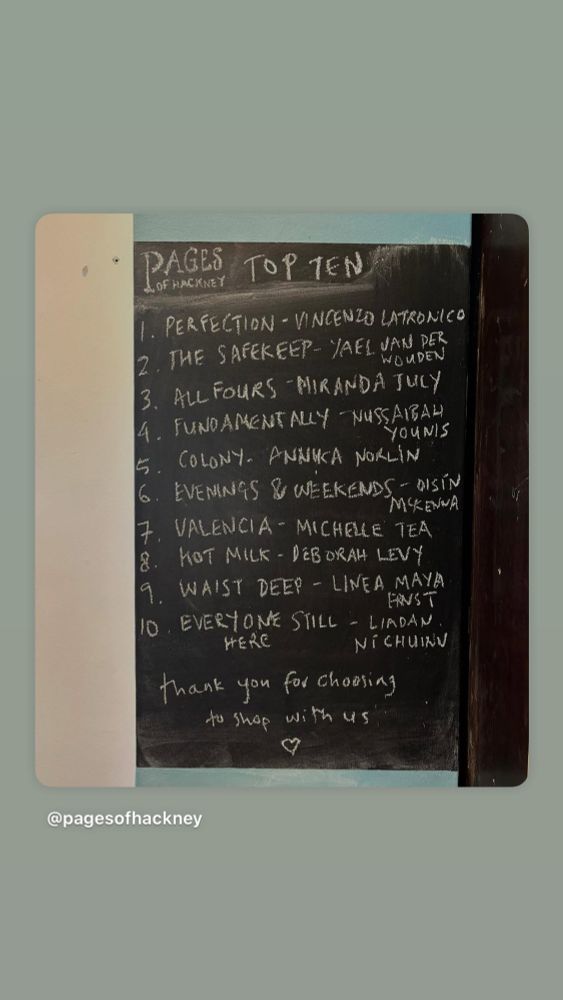 PAGES
OF HACKNEY
TOP TEN
1. PERFECTION - VINCENZO LATRONICO
2. THE SAFEKEEP - YAEL VAN DER
WOUDEN
3. ALL FOURS - MIRANDA JULY
4. FUNDAMENTALLY - NUSSAIBAH
YOUNIS
5. COLONY. ANNIKA NORLIN
6. EVENINGS & WEEKENDS - OISÍN
MCKENNA
7. VALENCIA - MICHELLE TEA
8. HOT MILK - DEBORAH LEVY
9. WAIST DEEP - LINEA MAYA
ERNST
10. EVERYONE STILL - LIADAN
HERE NÍ CHUINN
thank you for choosing
to shop with us
@pagesofhackney